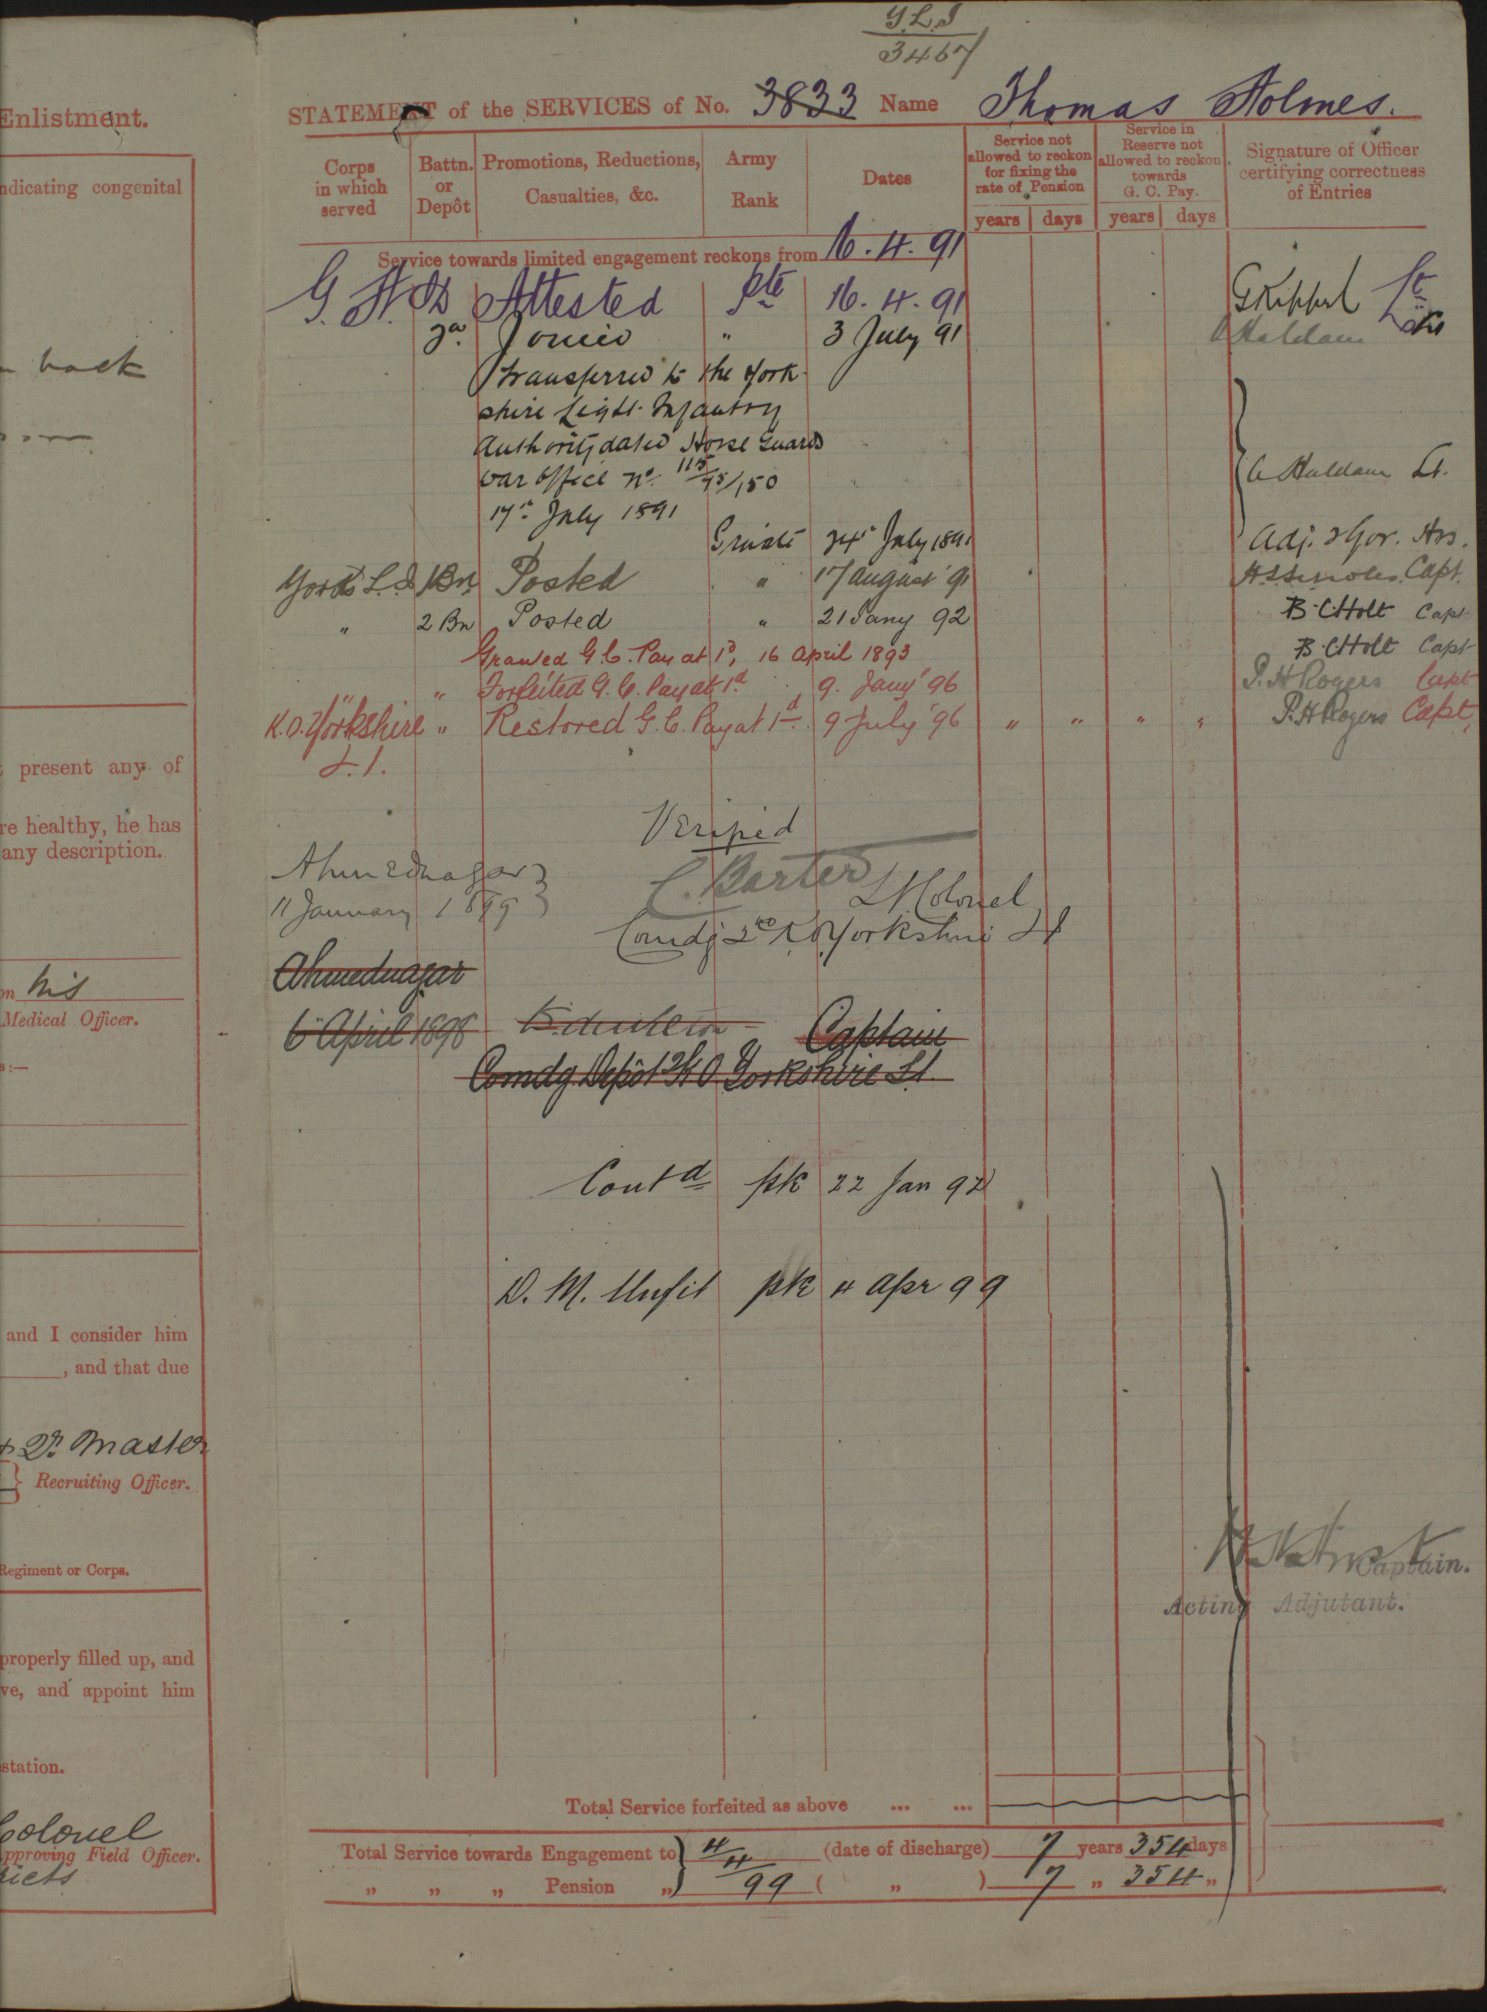 Enlistment.
ndicating congenital
back
t present any of
re healthy, he has
any description.
on his
Medical Officer.
s:—
and I consider him
, and that due
Qr. Master
Recruiting Officer.
Regiment or Corps.
properly filled up, and
ve, and appoint him
station.
Colonel
pproving Field Officer.
ricts
Y.L.I
3467
STATEMENT of the SERVICES of No. 3833 Name Thomas Holmes.
Corps in which served
Battn. or Depôt
Promotions, Reductions, Casualties, &c.
Army Rank
Dates
Service not allowed to reckon for fixing the rate of Pension
years days
Service in Reserve not allowed to reckon towards G. C. Pay.
years days
Signature of Officer certifying correctness of Entries
Service towards limited engagement reckons from 16.4.91
Attested Pte 16.4.91 Lt
Joined " 3 July 91 Haldane
Transferred to the York
shire Light Infantry
Authority dated Horse Guards
War Office No. 115/75/150 Haldane Lt.
17th July 1891
Private 24th July 1891 Adj.
Yorks L.I 1 Bn Posted " 17 August 91 Capt.
" 2 Bn Posted " 21 Jany 92 B C Holt Capt
Granted G.C. Pay at 1d, 16 April 1893 B C Holt Capt
" " Forfeited G.C. Pay at 1d. 9. Jany '96 P. H Rogers Capt
K.O. Yorkshire " Restored G.C. Pay at 1d. 9 July '96 " " " " P. H Rogers Capt,
L.I.
Verified
Ahmednagar
C. Barter Lt Colonel
11 January 1899
Comdg 2nd K.O. Yorkshire LI
Ahmednagar
6 April 1898 Captain
Comdg Depôt 2/K O Yorkshire L.I.
Contd pte 22 Jan 92
D. M. Unfit pte 4 Apr 99
Captain.
Acting Adjutant.
Total Service forfeited as above ... ...
Total Service towards Engagement to 4/4/99 (date of discharge) 7 years 354 days
" " " Pension " ( " ) 7 " 354 "